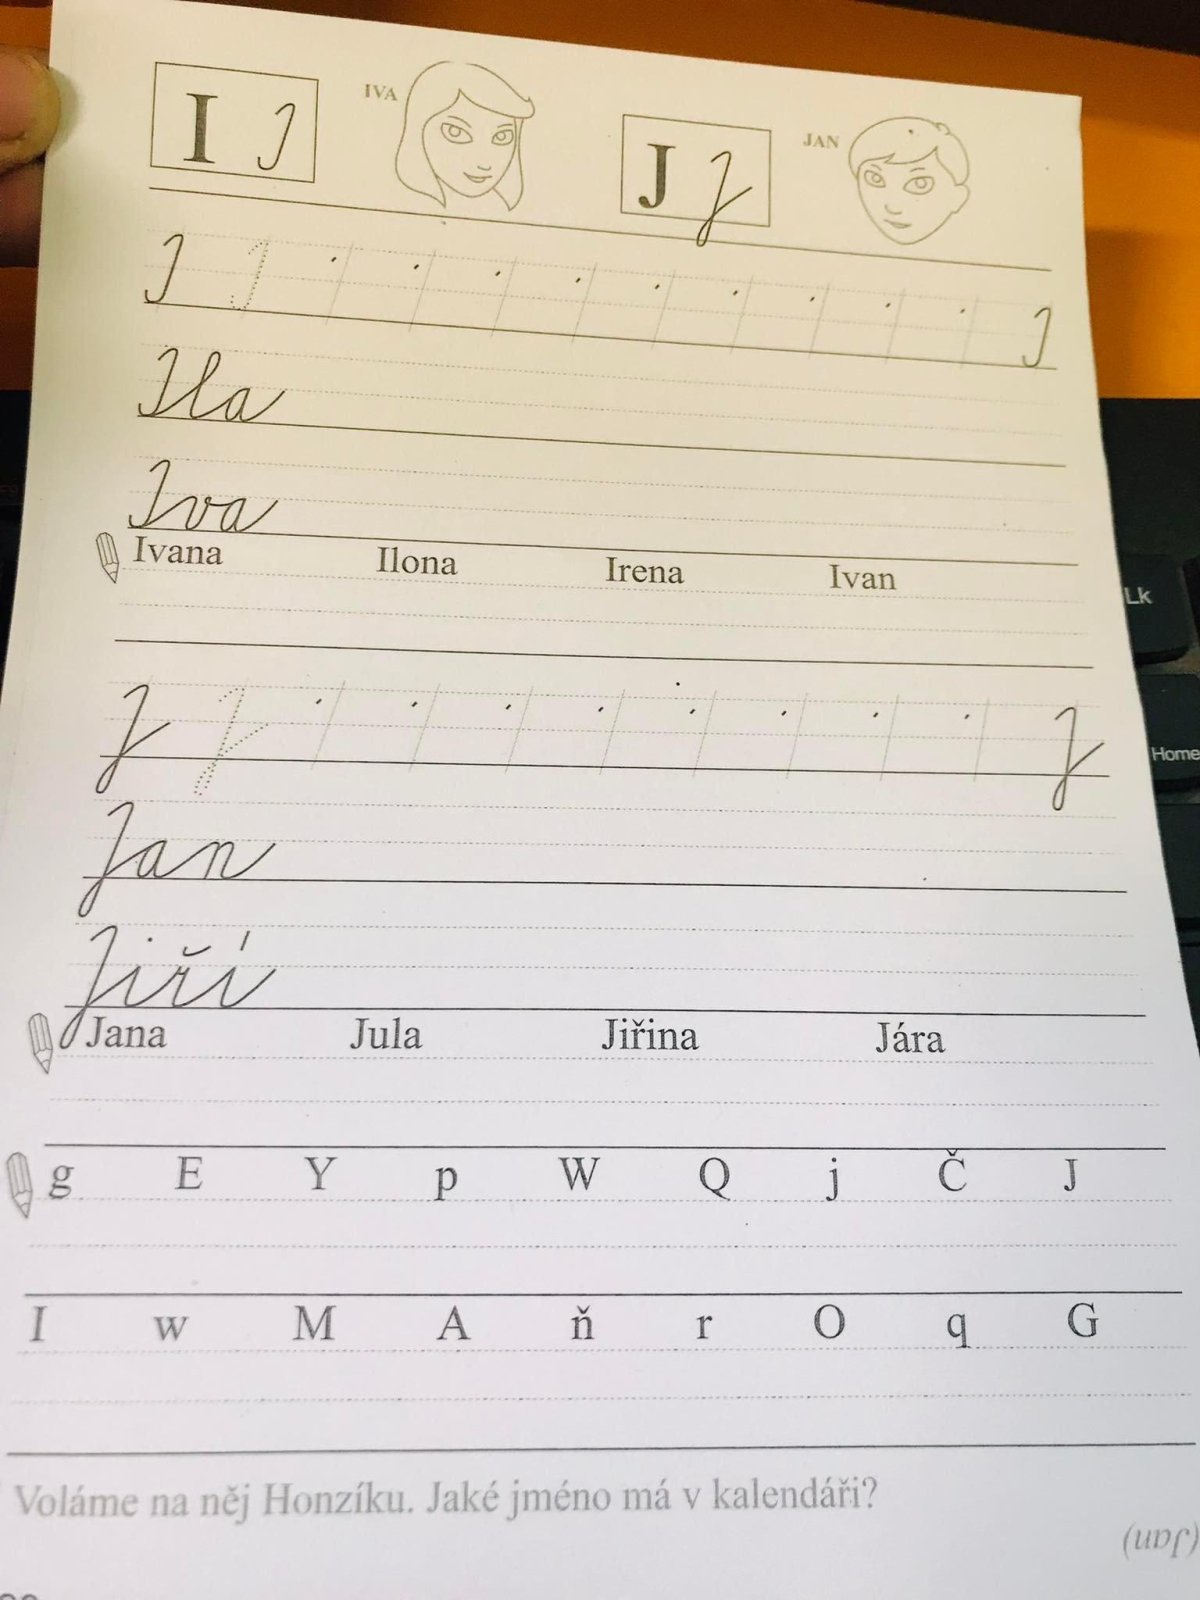 I I IVA J J JAN
I I I
Ila
Iva
Ivana Ilona Irena Ivan
J J J
Jan
Jiří
Jana Jula Jiřina Jára
g E Y p W Q j Č J
I w M A ň r O q G
Voláme na něj Honzíku. Jaké jméno má v kalendáři?
(Jan)
Lk
Home